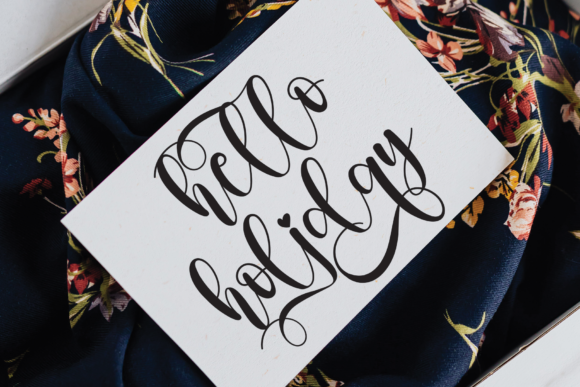 hello
holiday